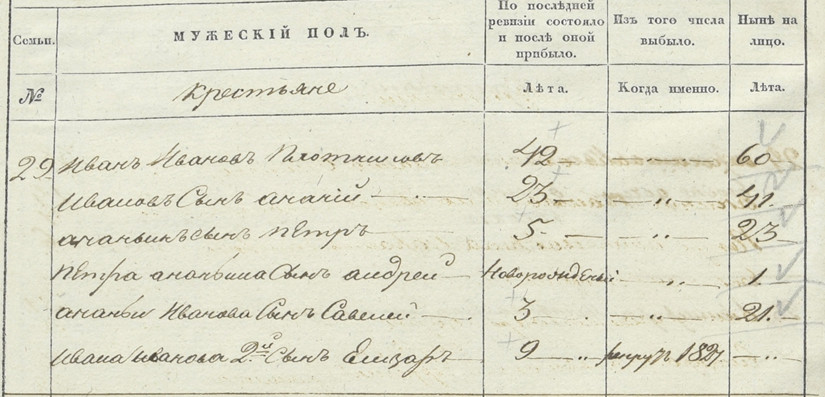 Семьи. МУЖЕСКІЙ ПОЛЪ. По послѣдней ревизіи состояло и послѣ оной прибыло. Изъ того числа выбыло. Нынѣ на лицо.
№ Крестьяне Лѣта. Когда именно. Лѣта.
29 Иванъ Ивановъ Плотниковъ 42 „ 60
Ивановъ Сынъ Ананій 23 „ 41.
Ананьинъ сынъ Петръ 5 „ 23
Петра Ананьина Сынъ Андрей Новорожденый „ 1.
Ананьи Иванова Сынъ Савелей 3 „ 21.
Ивана Иванова 2й Сынъ Елизаръ 9 „ рекрутъ 1827 „